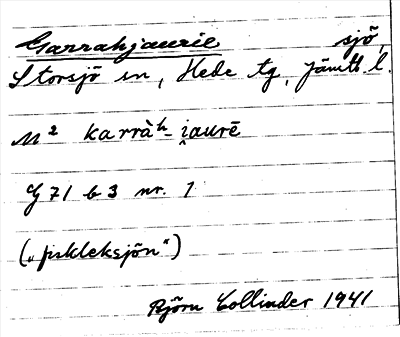 Garrahjaurie sjö
Storsjö sn, Hede tg, Jämtl. l.
M² karràʰ- i̯aurē
G 71 b 3 nr. 1
("fiskleksjön")
Björn Collinder 1941